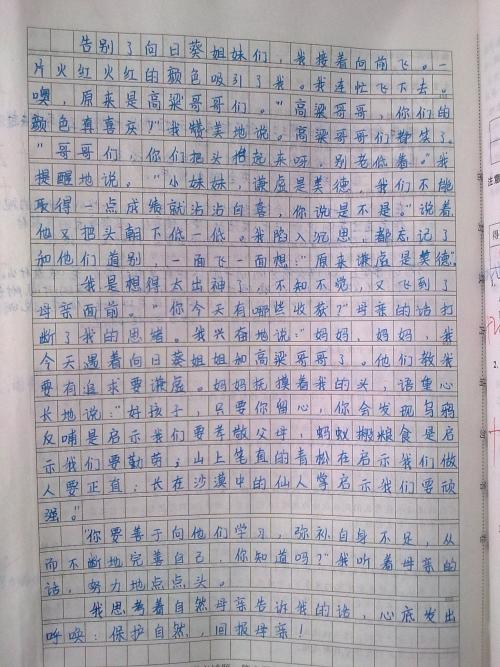 告别了向日葵姐妹们，我接着向前飞。一
片火红火红的颜色吸引了我。我连忙飞下去。
噢，原来是高粱哥哥们。“高粱哥哥，你们的
颜色真喜庆？”我赞美地说。高粱哥哥们都笑了。
“哥哥们，你们把头抬起来呀，别老低着。”我
提醒地说。“小妹妹，谦虚是美德，我们不能
取得一点成绩就沾沾自喜，你说是不是。”说着
他又把头朝下低一低。我陷入沉思，都忘记了
和他们道别，一面飞一面想：“原来谦虚是美德”。
我是想得太出神了，不知不觉，又飞到了
母亲面前。“你今天有哪些收获？”母亲的话打
断了我的思绪。我兴奋地说：“妈妈，妈妈，我
今天遇着向日葵姐姐和高粱哥哥了。他们教我
要有追求要谦虚。妈妈抚摸着我的头，语重心
长地说：“好孩子，只要你留心，你会发现乌鸦
反哺是启示我们要孝敬父母，蚂蚁搬粮食是启
示我们要勤劳；山上笔直的青松在启示我们做
人要正直；长在沙漠中的仙人掌启示我们要顽
强。”
“你要善于向他们学习，弥补自身不足，从
而不断地完善自己，你知道吗？”我听着母亲的
话，努力地点点头。
我思考着自然母亲告诉我的话，心底发出
呼唤：保护自然，回报母亲！